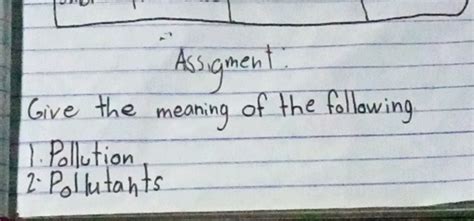 Assigment:
Give the meaning of the following
1. Pollution
2. Pollutants